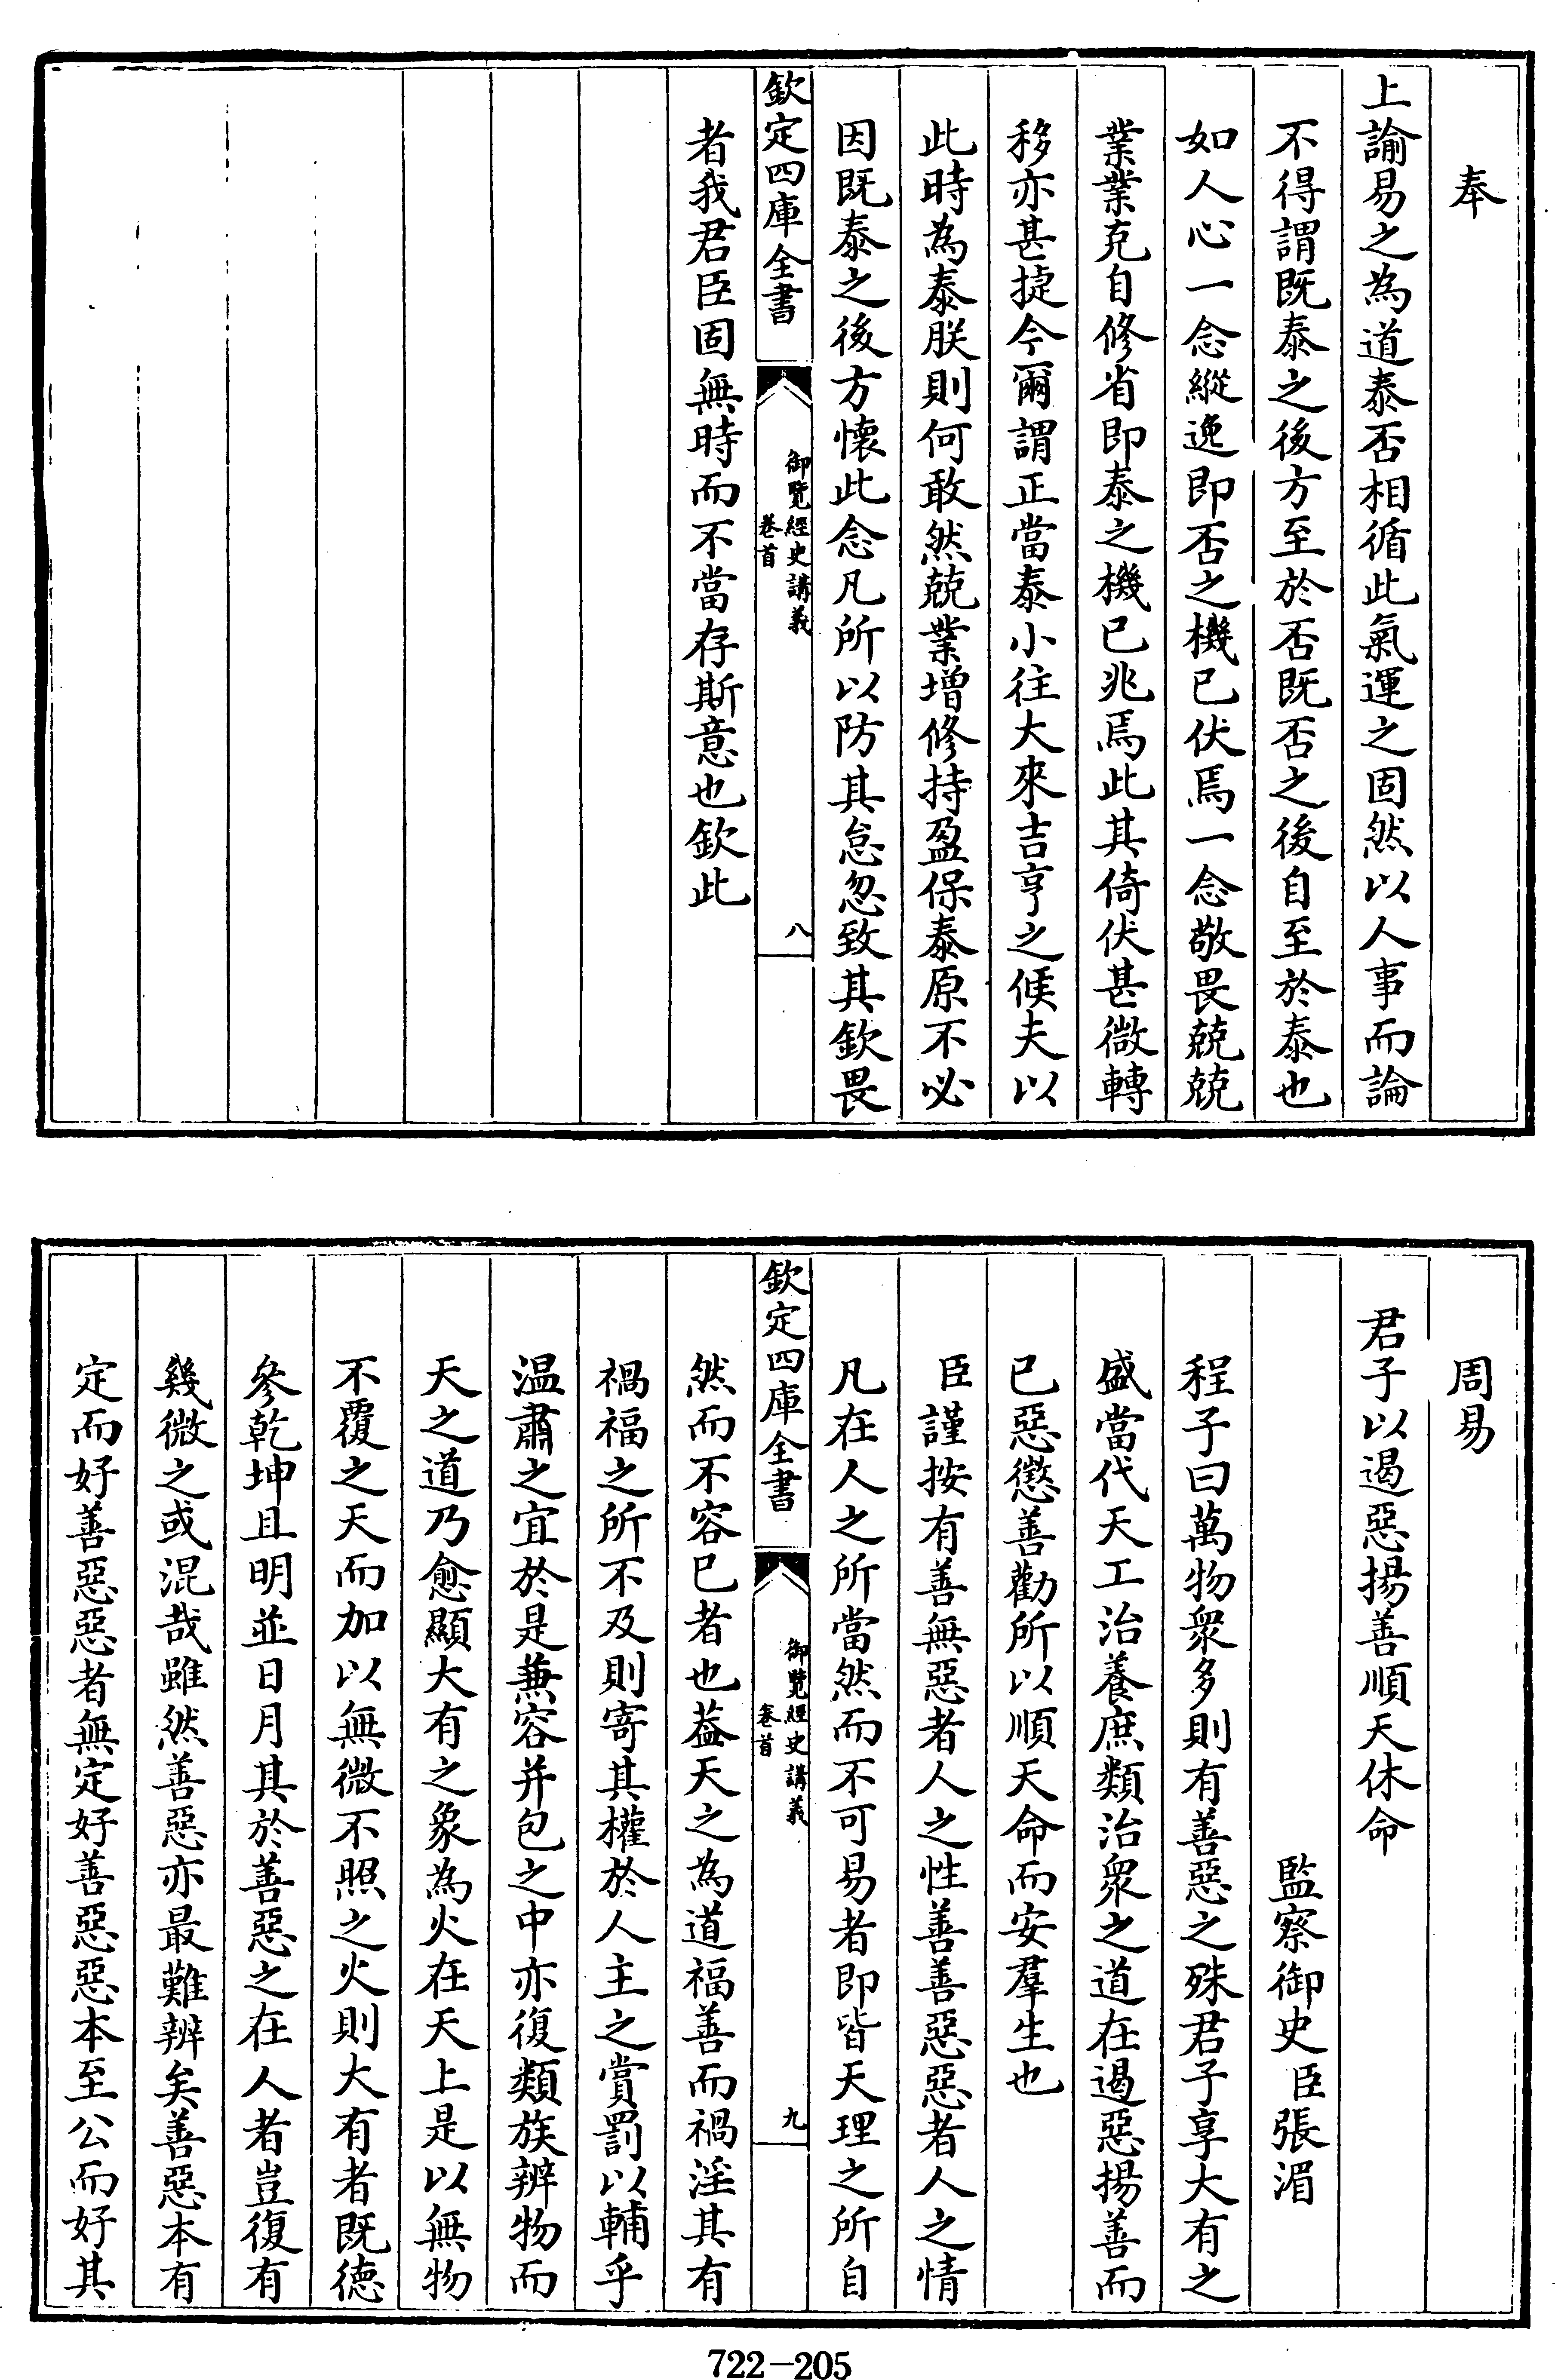 奉
上諭易之為道泰否相循此氣運之固然以人事而論
不得謂既泰之後方至於否既否之後自至於泰也
如人心一念縱逸即否之機已伏焉一念敬畏兢兢
業業克自修省即泰之機已兆焉此其倚伏甚微轉
移亦甚捷今爾謂正當泰小往大來吉亨之候夫以
此時為泰朕則何敢然兢業增修持盈保泰原不必
因既泰之後方懷此念凡所以防其怠忽致其欽畏
欽定四庫全書
御覽經史講義
卷首
八
者我君臣固無時而不當存斯意也欽此
周易
君子以遏惡揚善順天休命
監察御史臣張湄
程子曰萬物衆多則有善惡之殊君子享大有之
盛當代天工治養庶類治衆之道在遏惡揚善而
已惡懲善勸所以順天命而安羣生也
臣謹按有善無惡者人之性善善惡惡者人之情
凡在人之所當然而不可易者即皆天理之所自
欽定四庫全書
御覽經史講義
卷首
九
然而不容已者也葢天之為道福善而禍淫其有
禍福之所不及則寄其權於人主之賞罰以輔乎
温肅之宜於是兼容并包之中亦復類族辨物而
天之道乃愈顯大有之象為火在天上是以無物
不覆之天而加以無微不照之火則大有者既德
參乾坤且明並日月其於善惡之在人者豈復有
幾微之或混哉雖然善惡亦最難辨矣善惡本有
定而好善惡惡者無定好善惡惡本至公而好其
722-205